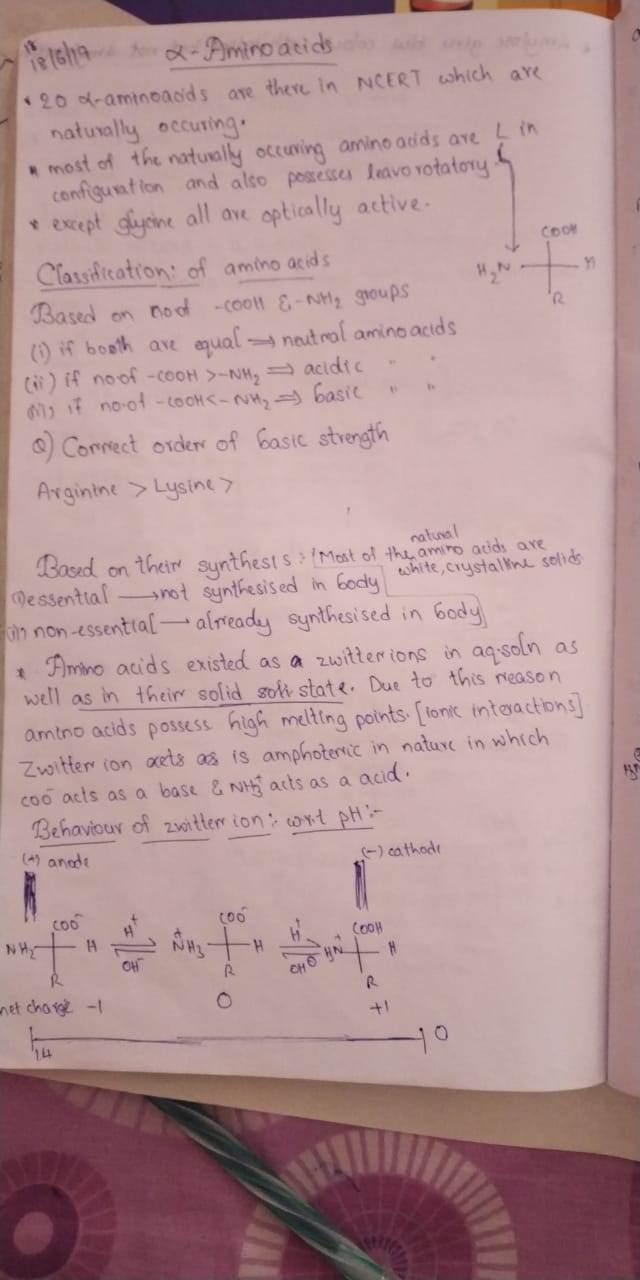 18/6/19
α-Aminoacids
• 20 α-aminoacids are there in NCERT which are
naturally occuring.
* most of the naturally occuring aminoacids are L in
configuration and also possesses leavorotatory.
* except glycine all are optically active.
COOH
H₂N H
R
Classification: of amino acids
Based on no.of -COOH & -NH₂ groups
(i) if booth are equal → neutral aminoacids
(ii) if no.of -COOH > -NH₂ ⇒ acidic " "
(iii) if no.of -COOH < -NH₂ ⇒ basic " "
Q) Correct order of basic strength
Arginine > Lysine >
natural
Based on their synthesis: [Most of the amino acids are
white, crystalline solids
(i) essential → not synthesised in body
(ii) non-essential → already synthesised in body]
* Amino acids existed as a zwitterions in aq.soln as
well as in their solid state. Due to this reason
amino acids possess high melting points. [Ionic interactions]
Zwitter ion is amphoteric in nature in which
COO⁻ acts as a base & NH₃⁺ acts as a acid.
Behaviour of zwitter ion: w.r.t pH:-
(+) anode (-) cathode
COO⁻ COO⁻ COOH
NH₂ H H⁺ ⇌ OH⁻ N⁺H₃ H H⁺ ⇌ OH⁻ H₃N⁺ H
R R R
net charge -1 0 +1
14 0